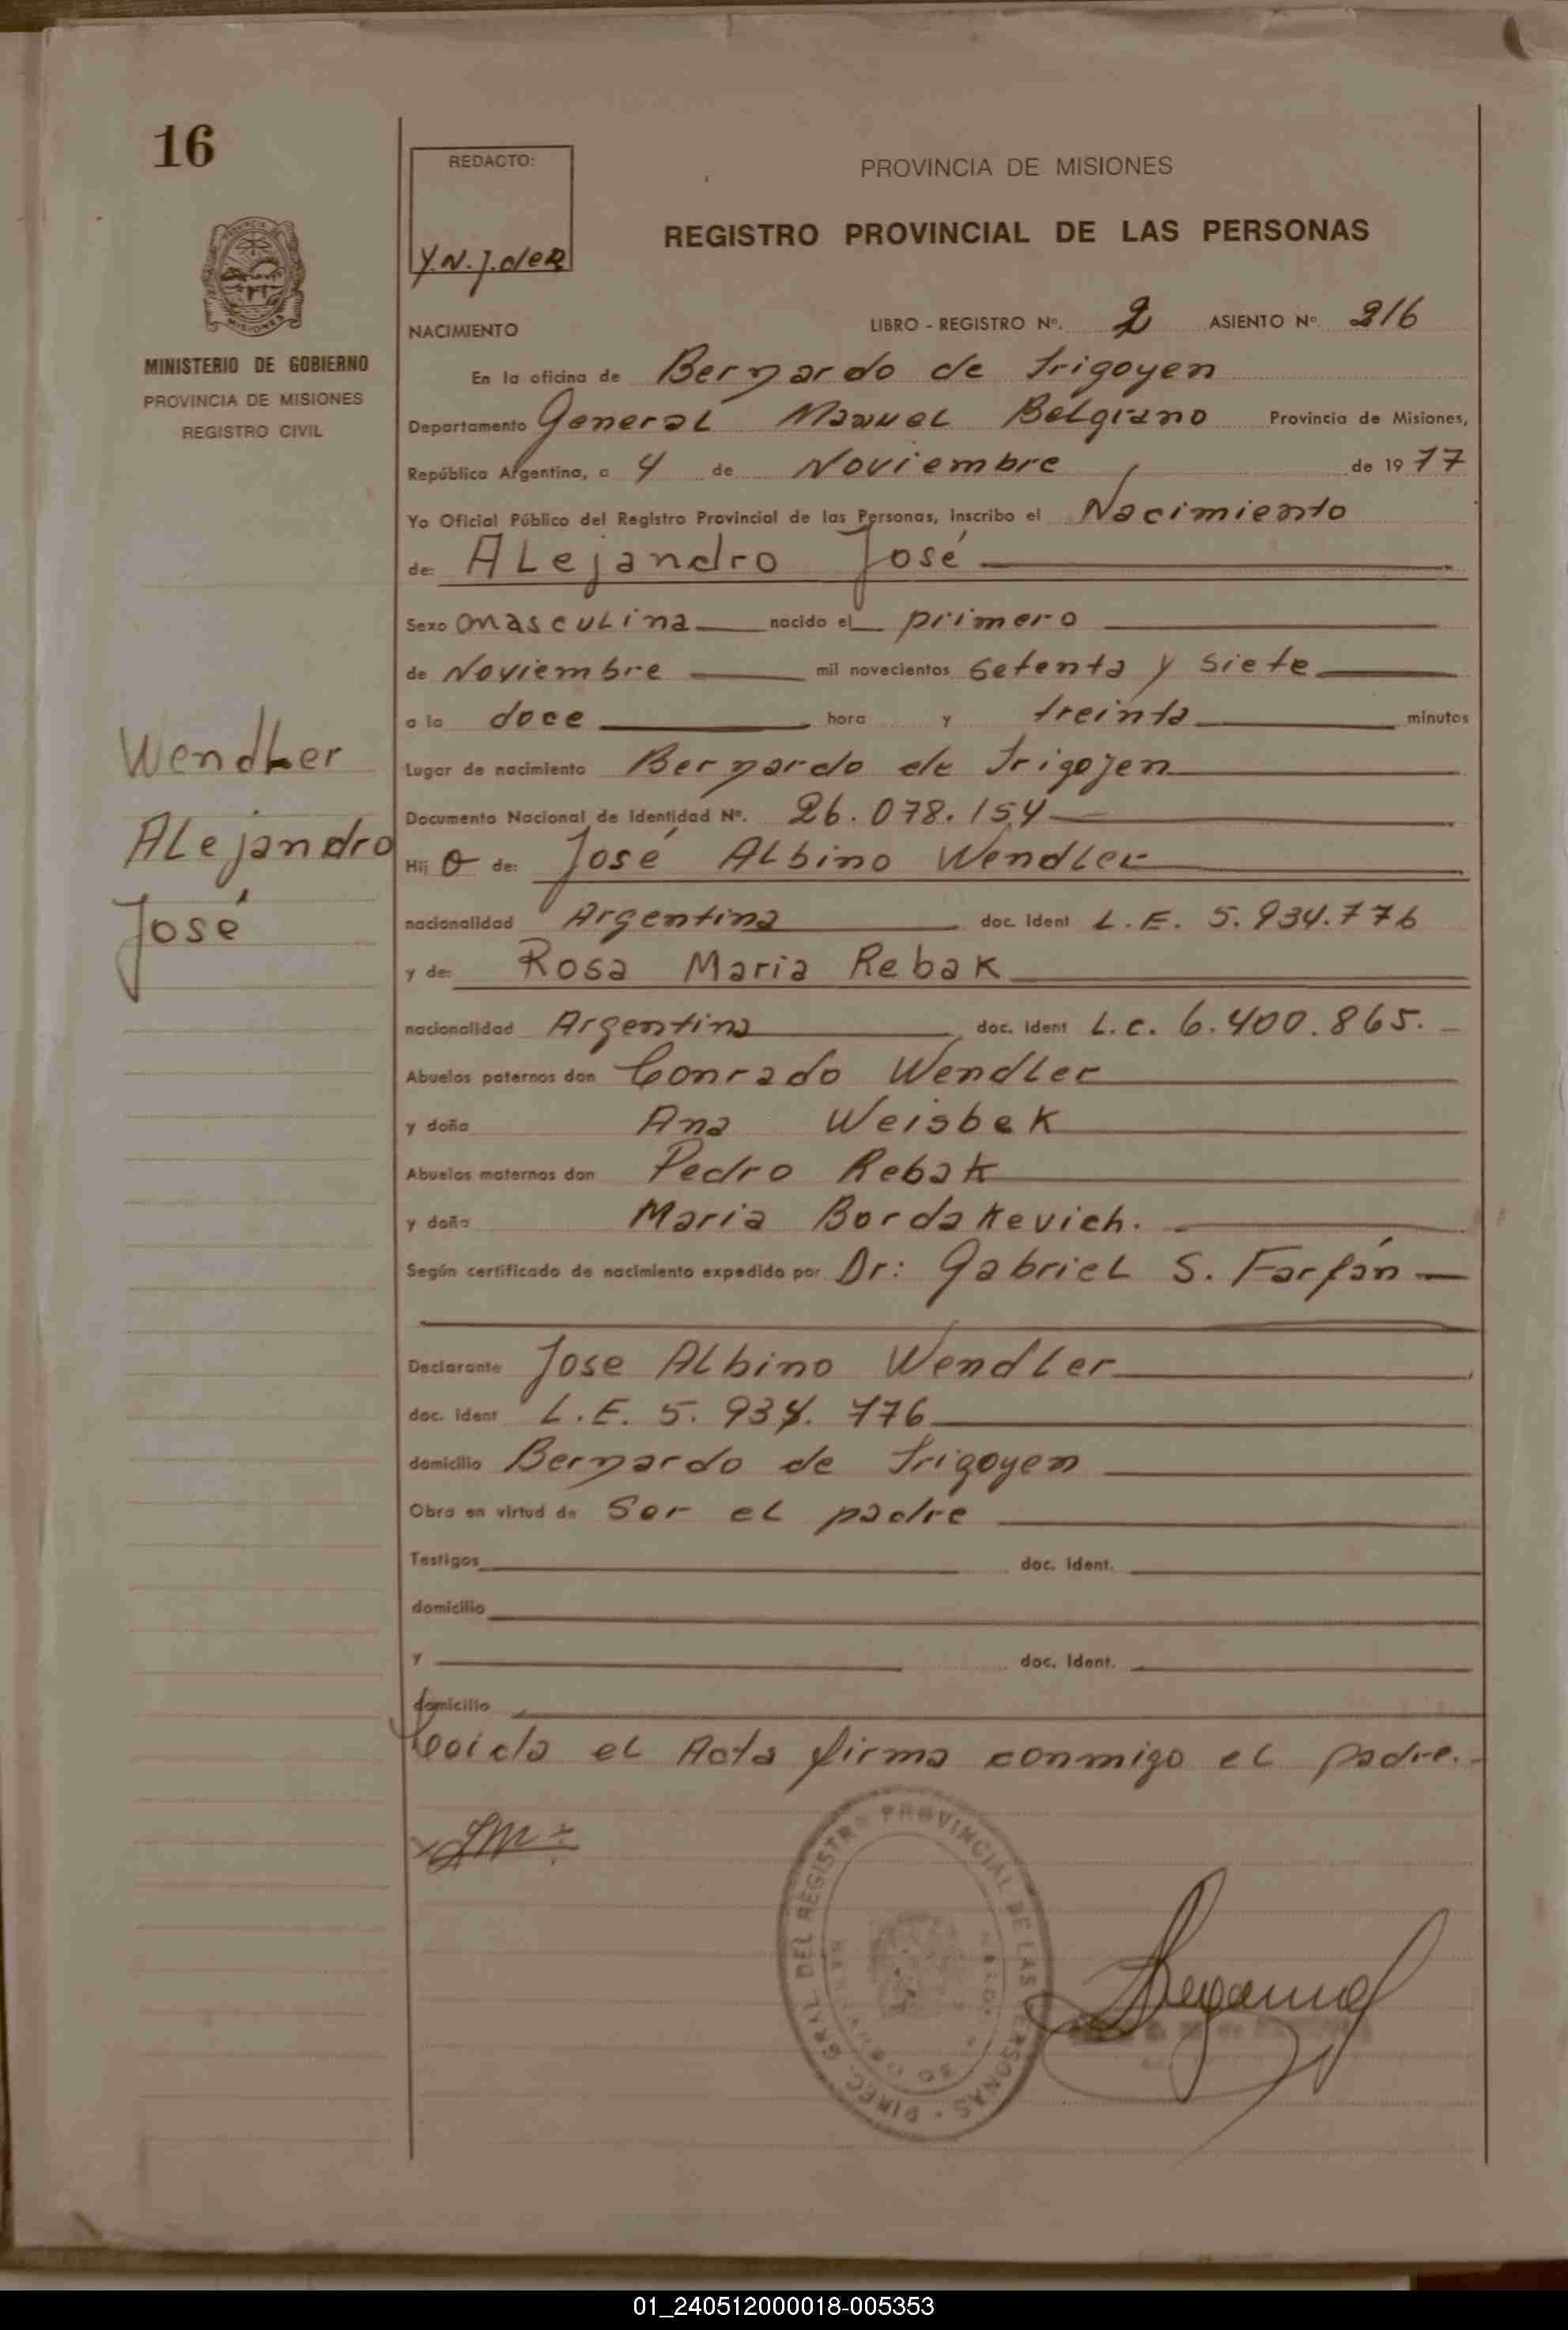 16
MINISTERIO DE GOBIERNO
PROVINCIA DE MISIONES
REGISTRO CIVIL
Wendler
Alejandro
José
REDACTO:
Y.N.J. deR
PROVINCIA DE MISIONES
REGISTRO PROVINCIAL DE LAS PERSONAS
NACIMIENTO LIBRO - REGISTRO Nº. 2 ASIENTO Nº. 216
En la oficina de Bernardo de Irigoyen
Departamento General Manuel Belgrano Provincia de Misiones,
República Argentina, a 4 de Noviembre de 1977
Yo Oficial Público del Registro Provincial de las Personas, inscribo el Nacimiento
de: Alejandro José
Sexo masculina nacido el primero
de Noviembre mil novecientos setenta y siete
a la doce hora y treinta minutos
Lugar de nacimiento Bernardo de Irigojen
Documento Nacional de Identidad Nº. 26.078.154
Hij o de: José Albino Wendler
nacionalidad Argentina doc. ident L.E. 5.934.776
y de: Rosa Maria Rebak
nacionalidad Argentina doc. ident L.C. 6.400.865.
Abuelos paternos don Conrado Wendler
y doña Ana Weisbek
Abuelos maternos don Pedro Rebak
y doña Maria Bordakevich.
Según certificado de nacimiento expedido por Dr: Gabriel S. Farfán
Declarante Jose Albino Wendler
doc. ident L.E. 5.934.776
domicilio Bernardo de Irigoyen
Obra en virtud de Ser el padre
Testigos doc. ident.
domicilio
y doc. ident.
domicilio
Leida el Acta firma conmigo el padre.
DIREC. GRAL. DEL REGISTRO PROVINCIAL DE LAS PERSONAS
01_240512000018-005353